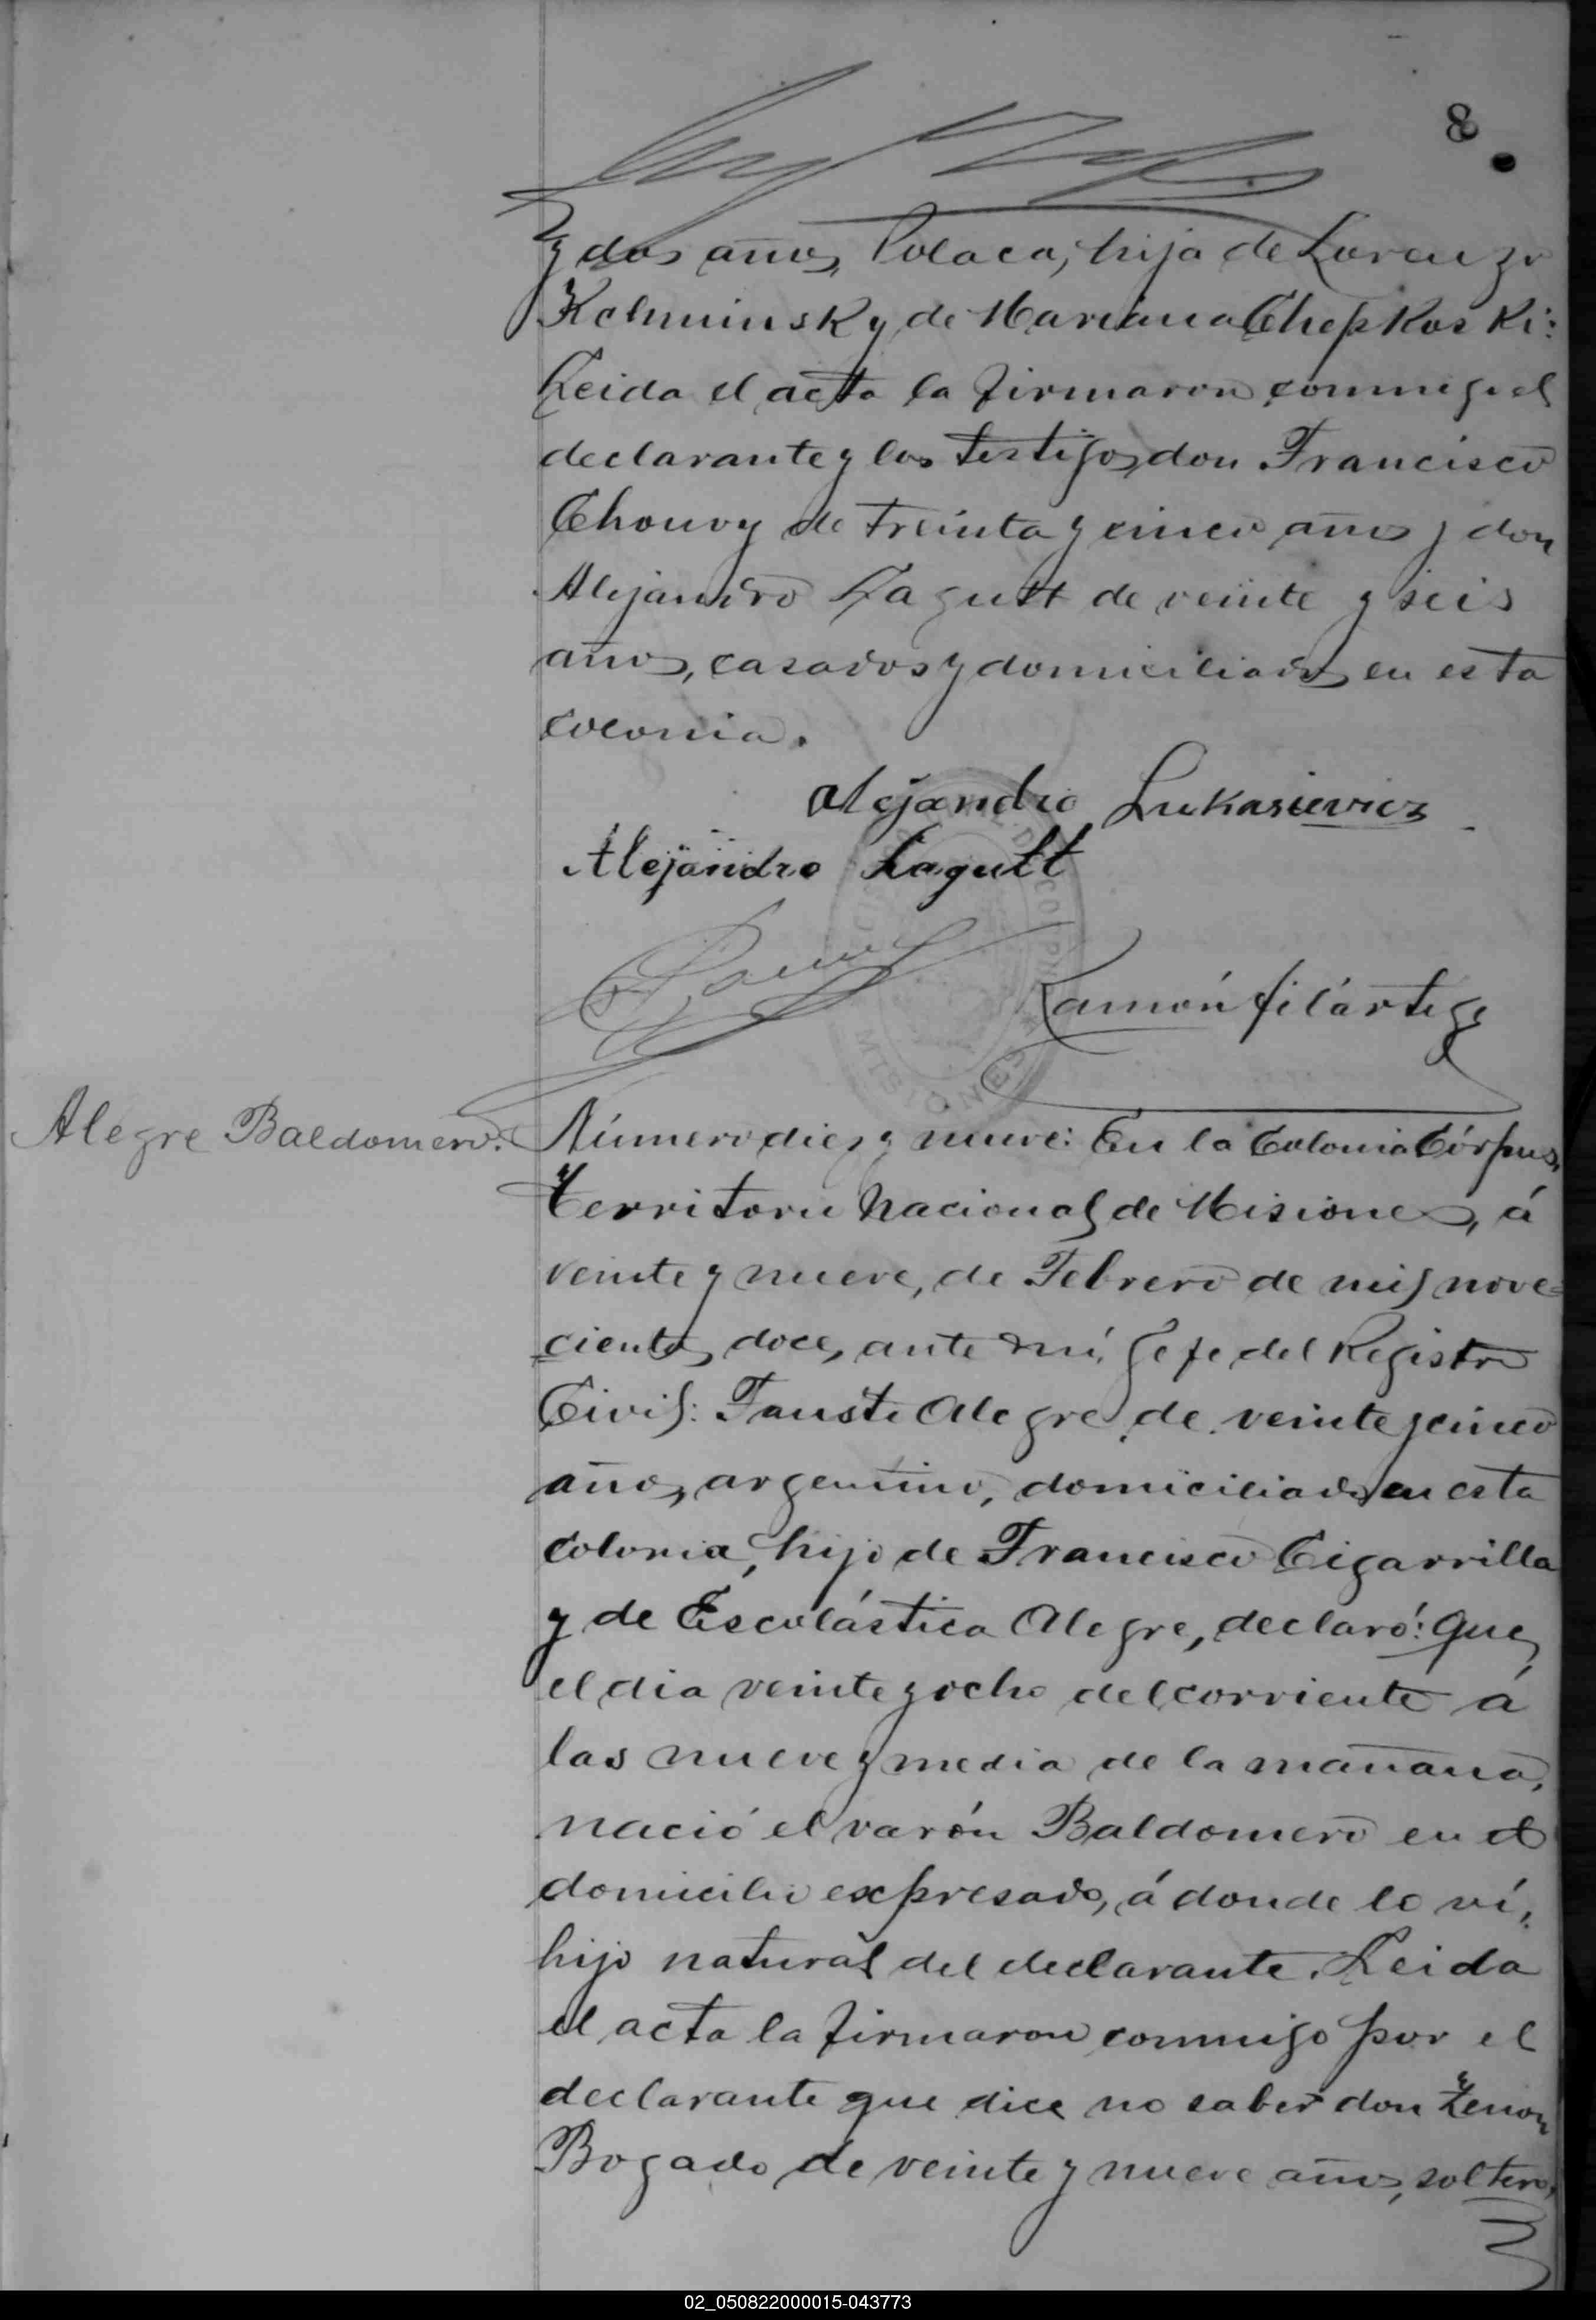 8
y dos años, Polaca, hija de Lorenzo
Kelminsky de Mariana Chepkoski:
Leida el acta la firmaron conmigo el
declarante y los testigos, don Francisco
Chouvy de treinta y cinco años y don
Alejandro Lagutt de veinte y seis
años, casados y domiciliados en esta
colonia.
Alejandro Lukasievicz
Alejandro Lagutt
Ramón filártiga
MISIONES
Alegre Baldomero.
Número diez y nueve: En la Colonia Córpus,
Territorio Nacional de Misiones, á
veinte y nueve, de Febrero de mil nove=
cientos doce, ante mí, Gefe del Registro
Civil: Fausto Alegre, de veinte y cinco
años, argentino, domiciliado en esta
colonia, hijo de Francisco Cigarrilla
y de Escolástica Alegre, declaró: Que,
el dia veinte y ocho del corriente á
las nueve y media de la mañana,
nació el varón Baldomero en el
domicilio expresado, á donde lo ví,
hijo natural del declarante. Leida
el acta la firmaron conmigo por el
declarante que dice no saber don Zenon
Bogado de veinte y nueve años, soltero,
02_050822000015-043773